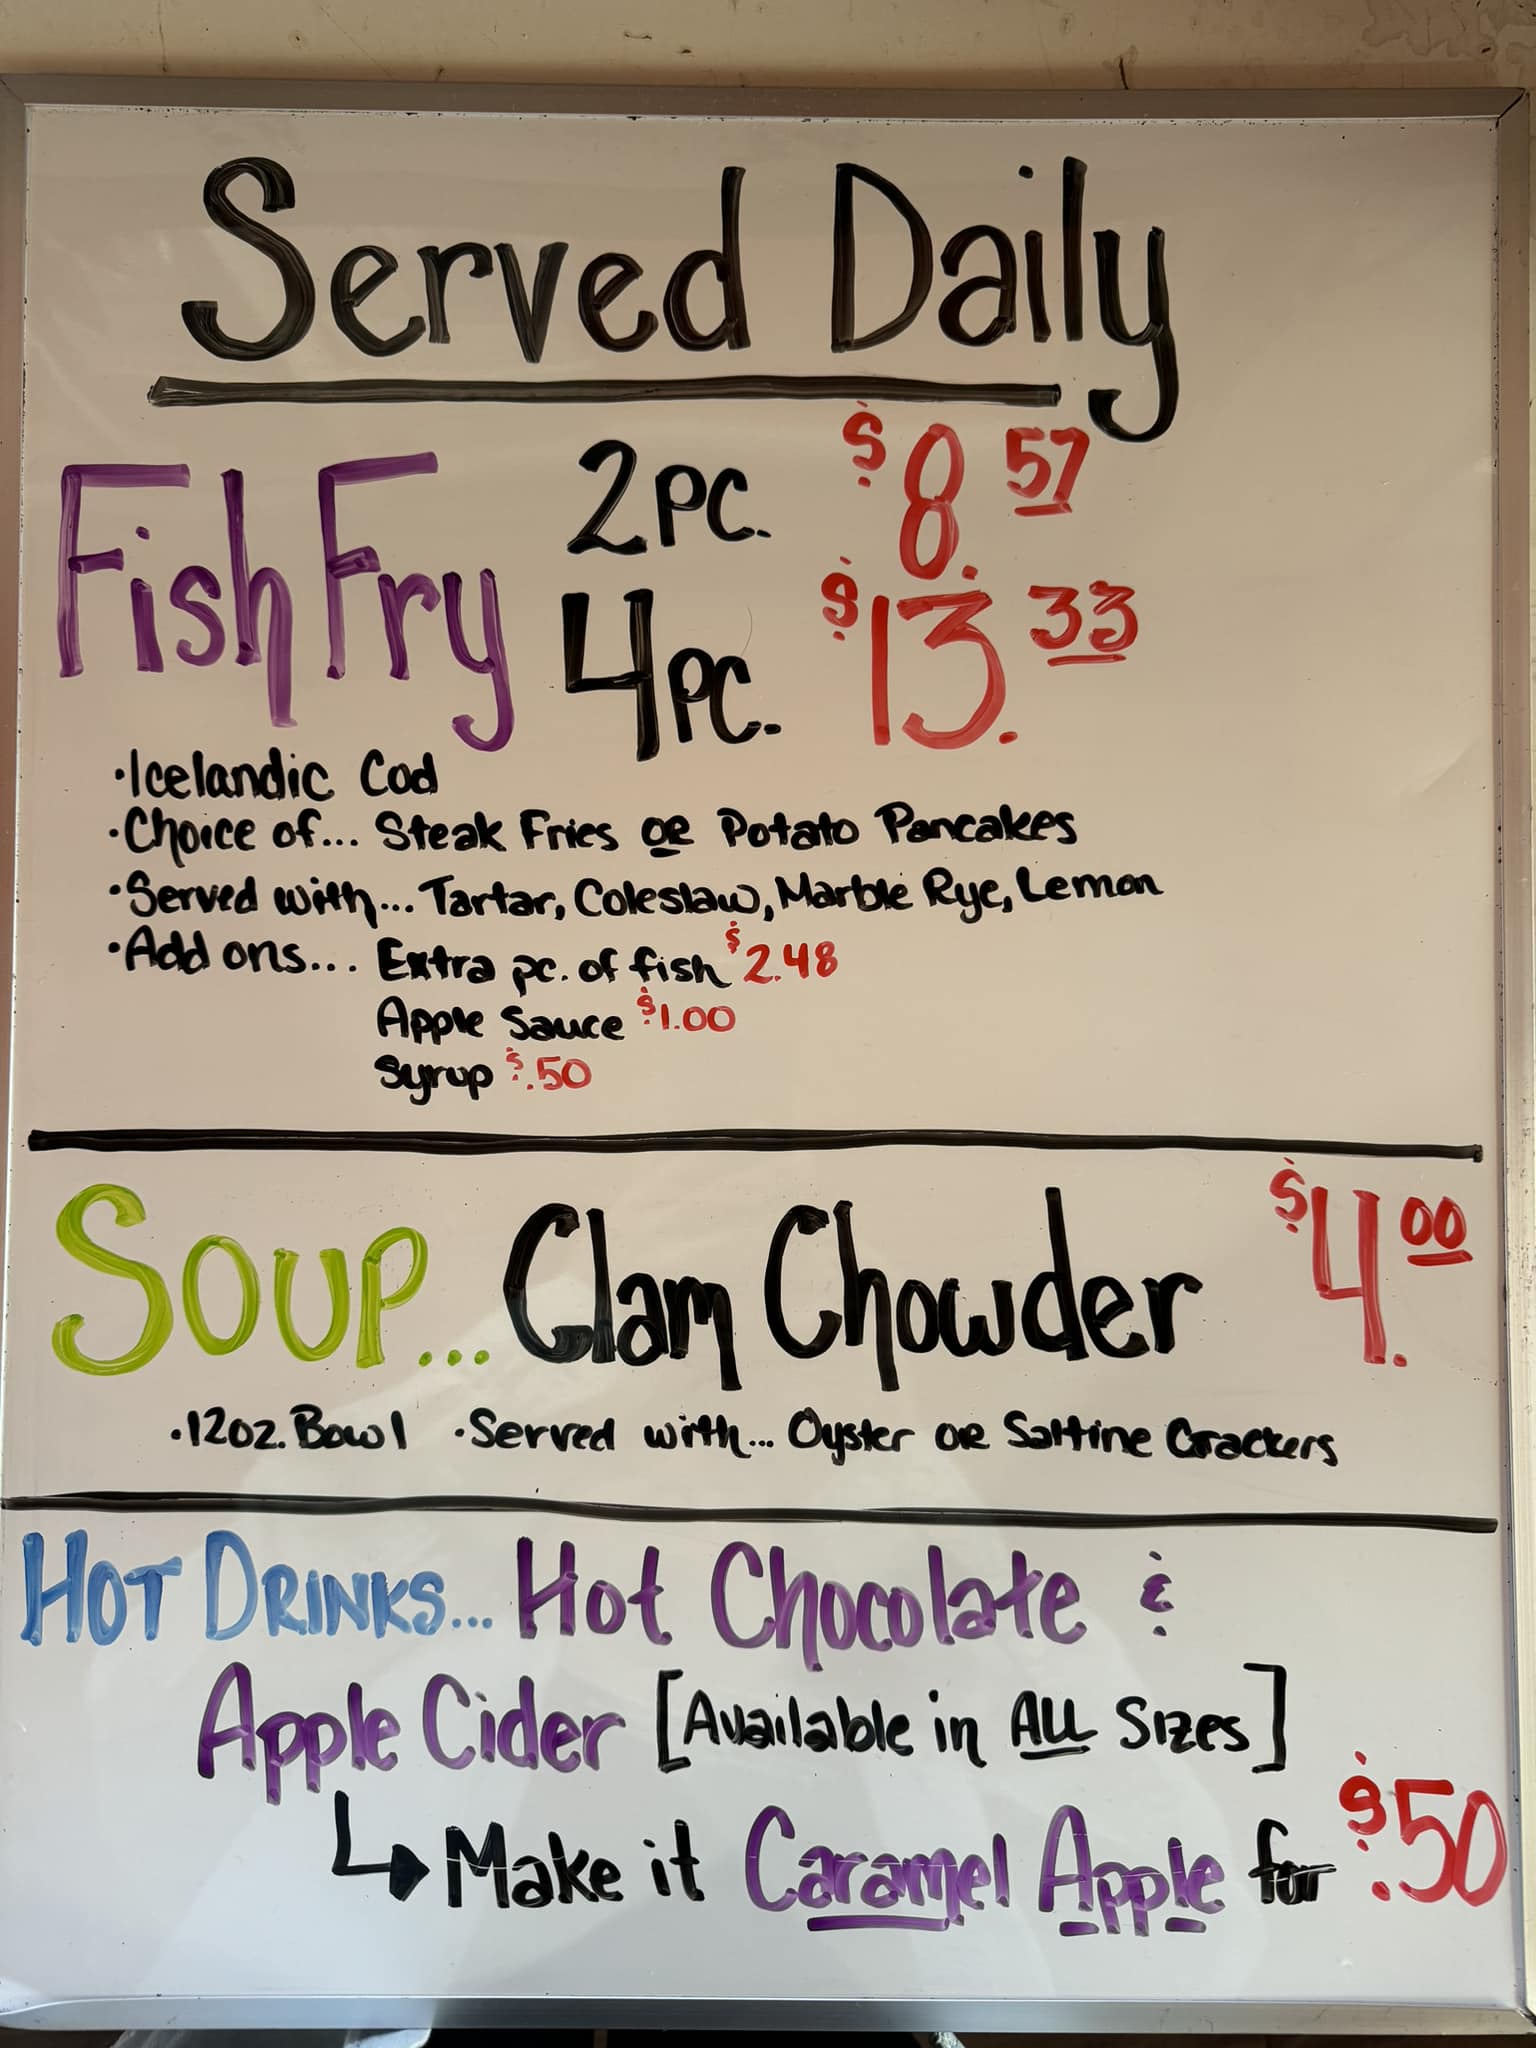 Served Daily
Fish Fry 2 pc. $8.57
4 pc. $13.33
•Icelandic Cod
•Choice of... Steak Fries OR Potato Pancakes
•Served with... Tartar, Coleslaw, Marble Rye, Lemon
•Add ons... Extra pc. of fish $2.48
Apple Sauce $1.00
Syrup $.50
SOUP... Clam Chowder $4.00
•12oz. Bowl •Served with... Oyster OR Saltine Crackers
HOT DRINKS... Hot Chocolate &
Apple Cider [Available in ALL Sizes]
↳ Make it Caramel Apple for $.50